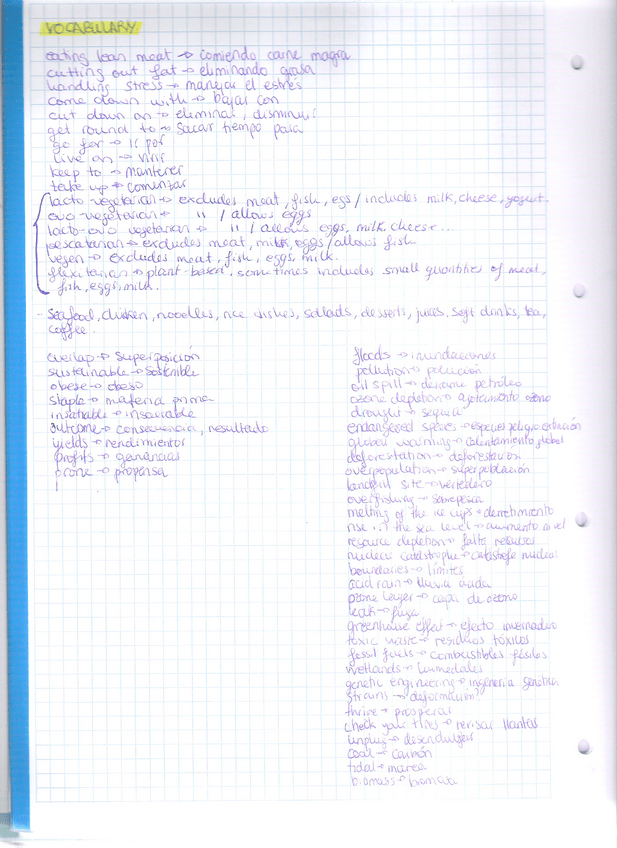 VOCABULARY
eating lean meat → comiendo carne magra
cutting out fat → eliminando grasa
handling stress → manejar el estrés
come down with → bajar con
cut down on → eliminar, disminuir
get round to → sacar tiempo para
go for → ir por
live on → vivir
keep to → mantener
take up → comenzar
lacto vegetarian → excludes meat, fish, egs / includes milk, cheese, yogurt.
ovo-vegetarian → " / allows eggs
lacto-ovo vegetarian → " / allows eggs, milk, cheese...
pescatarian → excludes meat, milk, eggs / allows fish
vegen → excludes meat, fish, eggs, milk.
flexitarian → plant-based, sometimes includes small quantities of meat,
fish, eggs, milk.
- Seafood, chicken, noodles, rice dishes, salads, desserts, juices, soft drinks, tea,
coffee.
overlap → superposición
sustainable → sostenible
obese → obeso
staple → materia prima
insatiable → insaciable
outcome → consecuencia, resultado
yields → rendimientos
profits → ganancias
prone → propensa
floods → inundaciones
pollution → polución
oil spill → derrame petróleo
ozone depletion → agotamiento ozono
drought → sequía
endangered species → especies peligro extinción
global warming → calentamiento global
deforestation → deforestación
overpopulation → superpoblación
landfill site → vertedero
overfishing → sobrepesca
melting of the ice cups → derretimiento
rise in the sea level → aumento nivel
resource depletion → falta recursos
nuclear catastrophe → catástrofe nuclear
boundaries → límites
acid rain → lluvia ácida
ozone layer → capa de ozono
leak → fuga
greenhouse effect → efecto invernadero
toxic waste → residuos tóxicos
fossil fuels → combustibles fósiles
wetlands → humedales
genetic engineering → ingeniería genética
strains → deformación?
thrive → prosperar
check your tires → revisar llantas
unplug → desenchufar
coal → carbón
tidal → marea
biomass → biomasa